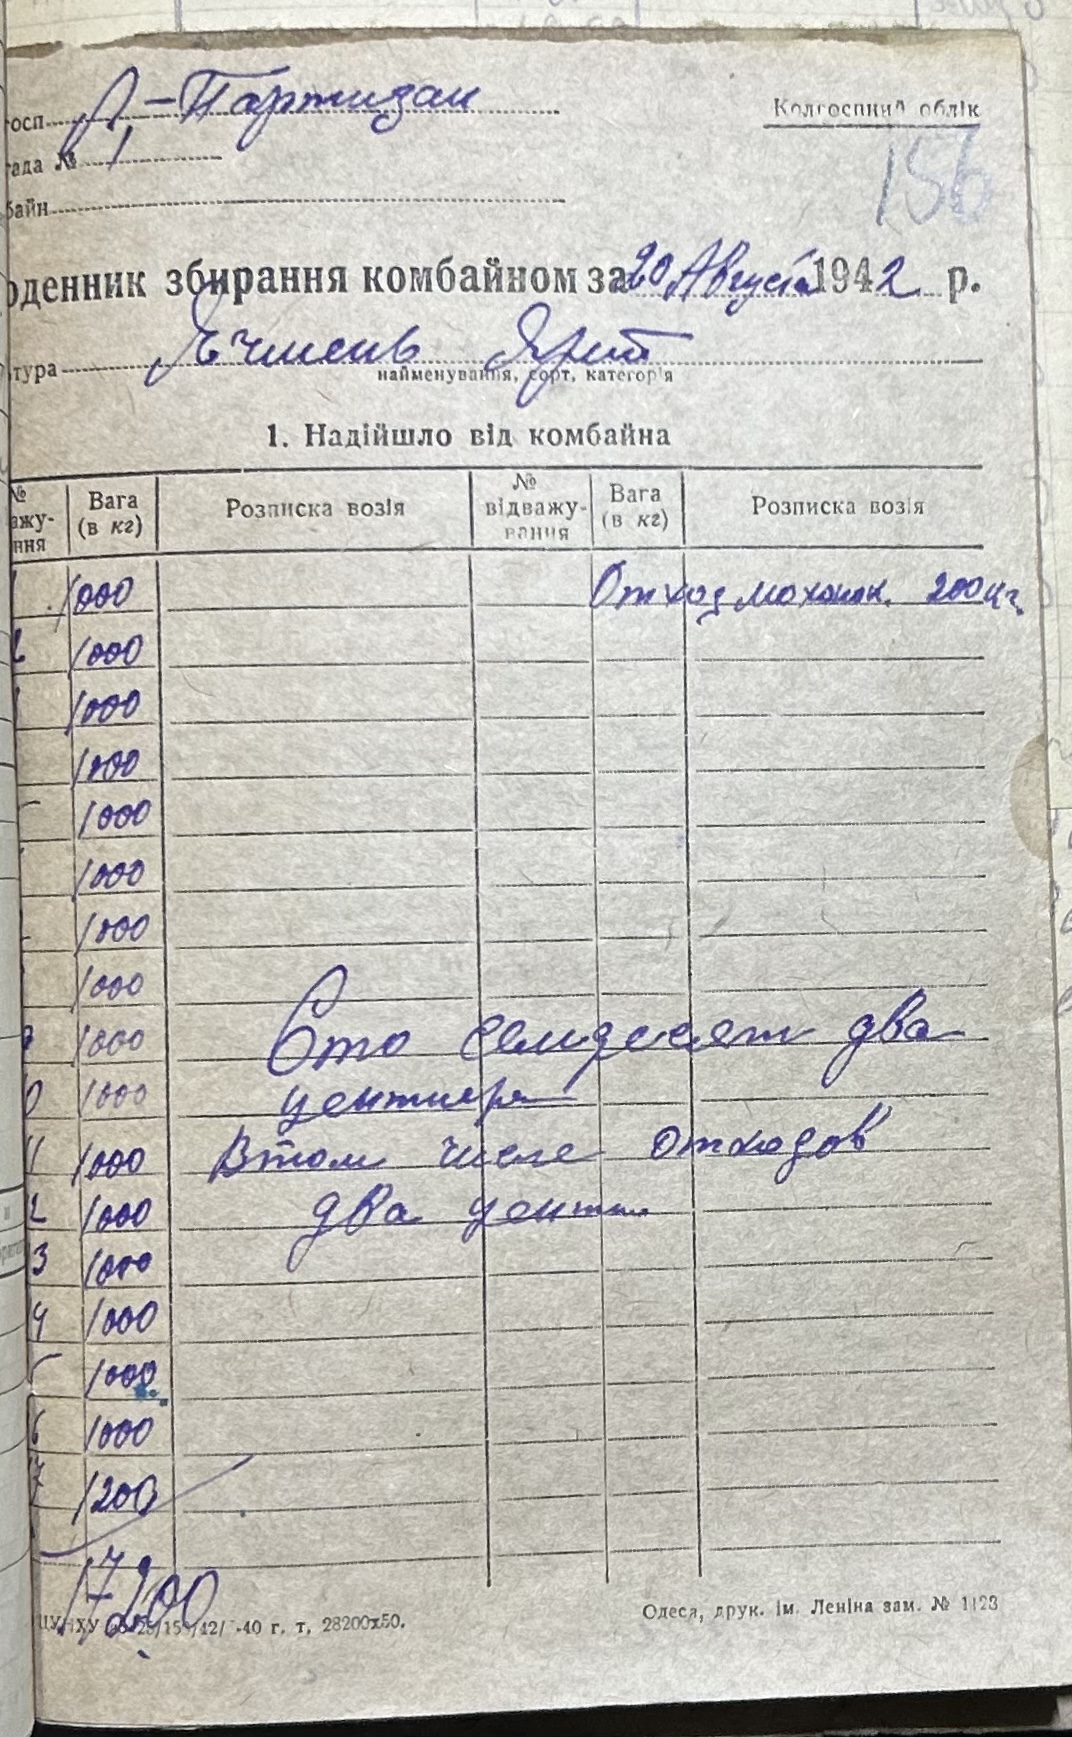 госп. Л,-Партизан
Колгоспний облік
гада № 1
156
байн
оденник збирання комбайном за 20 Августа 1942 р.
тура Ячмень Ярий
найменування, сорт, категорія
1. Надійшло від комбайна
№ ажу-ння Вага (в кг) Розписка возія № відважу-вання Вага (в кг) Розписка возія
1000 Отход 200 кг.
2 1000
1000
1000
1000
1000
1000
1000
1000 Сто семдесят два
0 1000 центнера
11 1000 В том числе отходов
2 1000 два цент
3 1000
4 1000
5 1000
6 1000
7 1200
17200
ЦУНХУ -40 г. т. 28200х50.
Одеса, друк. ім. Леніна зам. № 1123